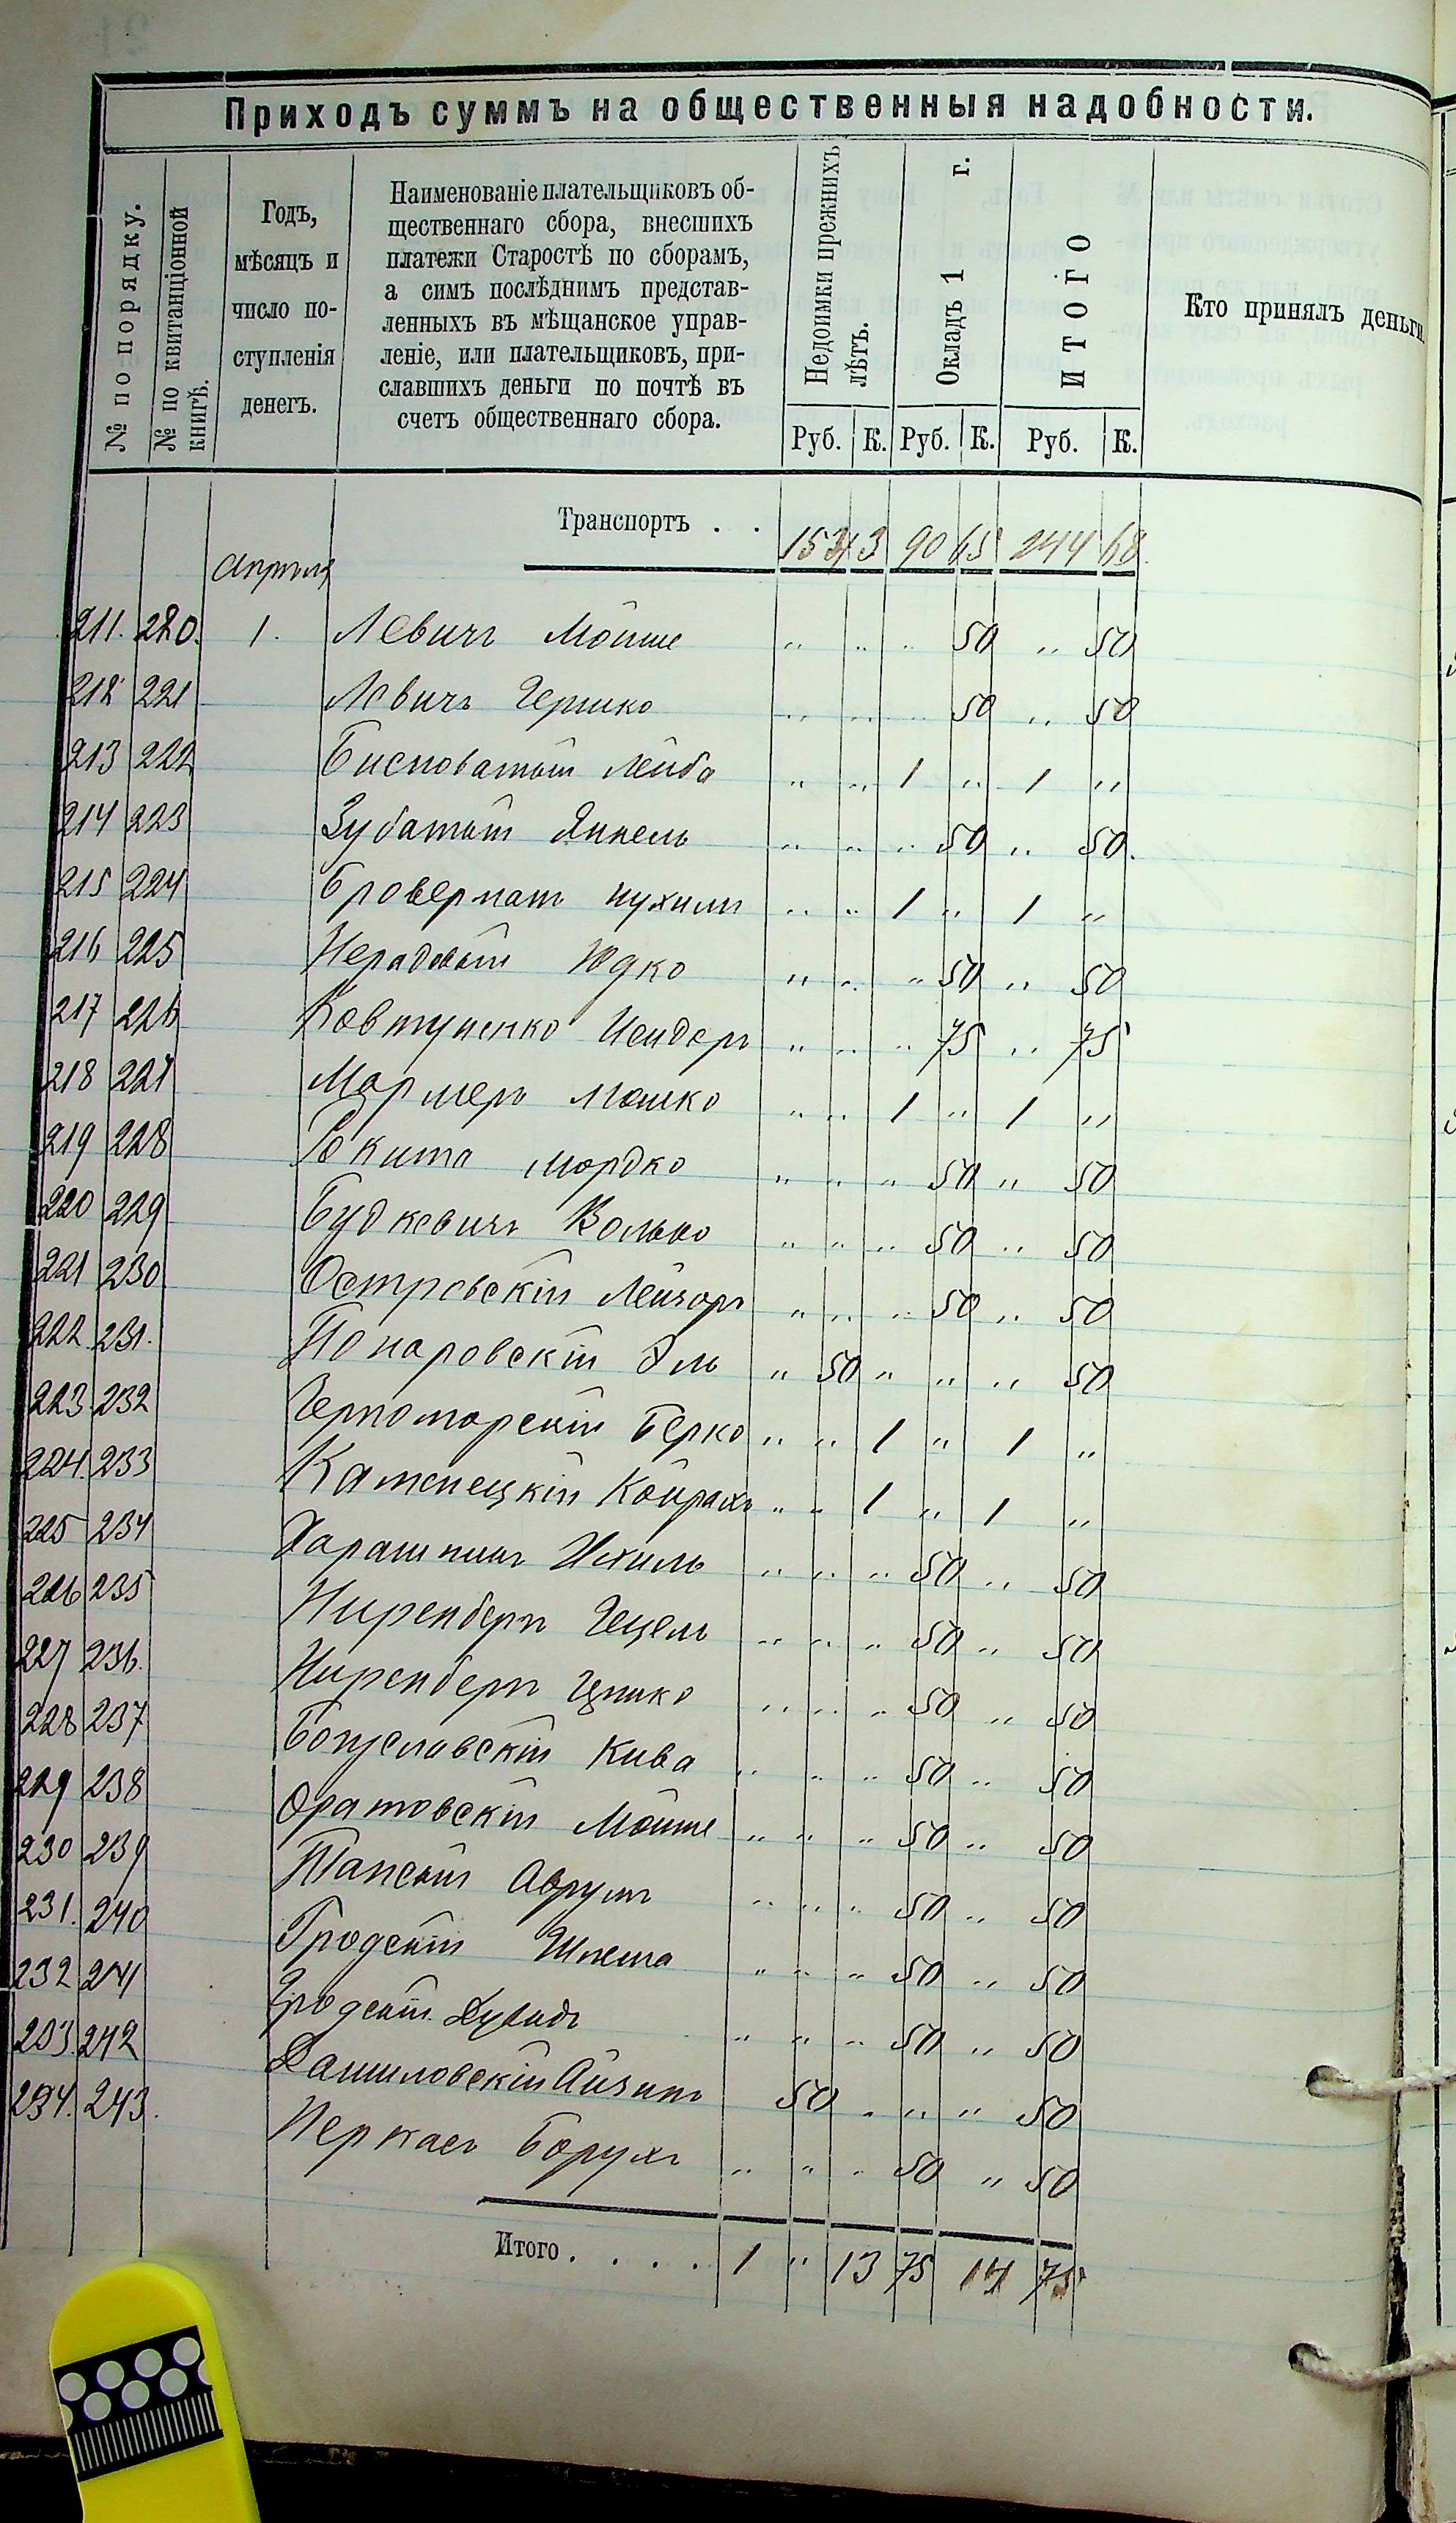 Приходъ суммъ на общественныя надобности.
№ по порядку.
№ по квитанціонной книгѣ.
Годъ, мѣсяцъ и число поступленія денегъ.
Наименованіе плательщиковъ об-
щественнаго сбора, внесшихъ
платежи Старостѣ по сборамъ,
а симъ послѣднимъ представ-
ленныхъ въ мѣщанское управ-
леніе, или плательщиковъ, при-
славшихъ деньги по почтѣ въ
счетъ общественнаго сбора.
Недоимки прежнихъ лѣтъ.
Окладъ 1 г.
Итого
Кто принялъ деньги
Руб. К. Руб. К. Руб. К.
Транспортъ . . 90 65 244 68
Апрѣля
211. 220. 1. Левичъ Мойше " " " 50 " 50
212 221 Левичъ Гершко " " " 50 " 50
213 222 Бисноватый Лейба " " 1 " 1 "
214 223 Зубатый Янкель " " " 50 " 50.
215 224 " " 1 " 1 "
216 225 Юдко " " " 50 " 50
217 226 Ковтуненко " " " 75 " 75
218 227 Мошко " " 1 " 1 "
219 228 Мордко " " " 50 " 50
220 229 Будкевичъ Волько " " " 50 " 50
221 230 Островскій Лейзоръ " " " 50 " 50
222 231. Понаровскій " 50 " " " 50
223 232 Черноморскій Берко " " 1 " 1 "
224. 233 Каменецкій " " 1 " 1 "
225 234 " " " 50 " 50
226 235 Ниренбергъ Гецель " " " 50 " 50
227 236. Ниренбергъ " " " 50 " 50
228 237 Богуславскій Кива " " " 50 " 50
229 238 Оратовскій Мойше " " " 50 " 50
230 239 Аврумъ " " " 50 " 50
231. 240 Гродскій Шлема " " " 50 " 50
232 241 Гродскій Дувидъ " " " 50 " 50
233. 242 Дашиловскій Айзикъ 50 " " " 50
234. 243. Борухъ " " " 50 " 50
Итого . . . . 1 " 13 75 14 75